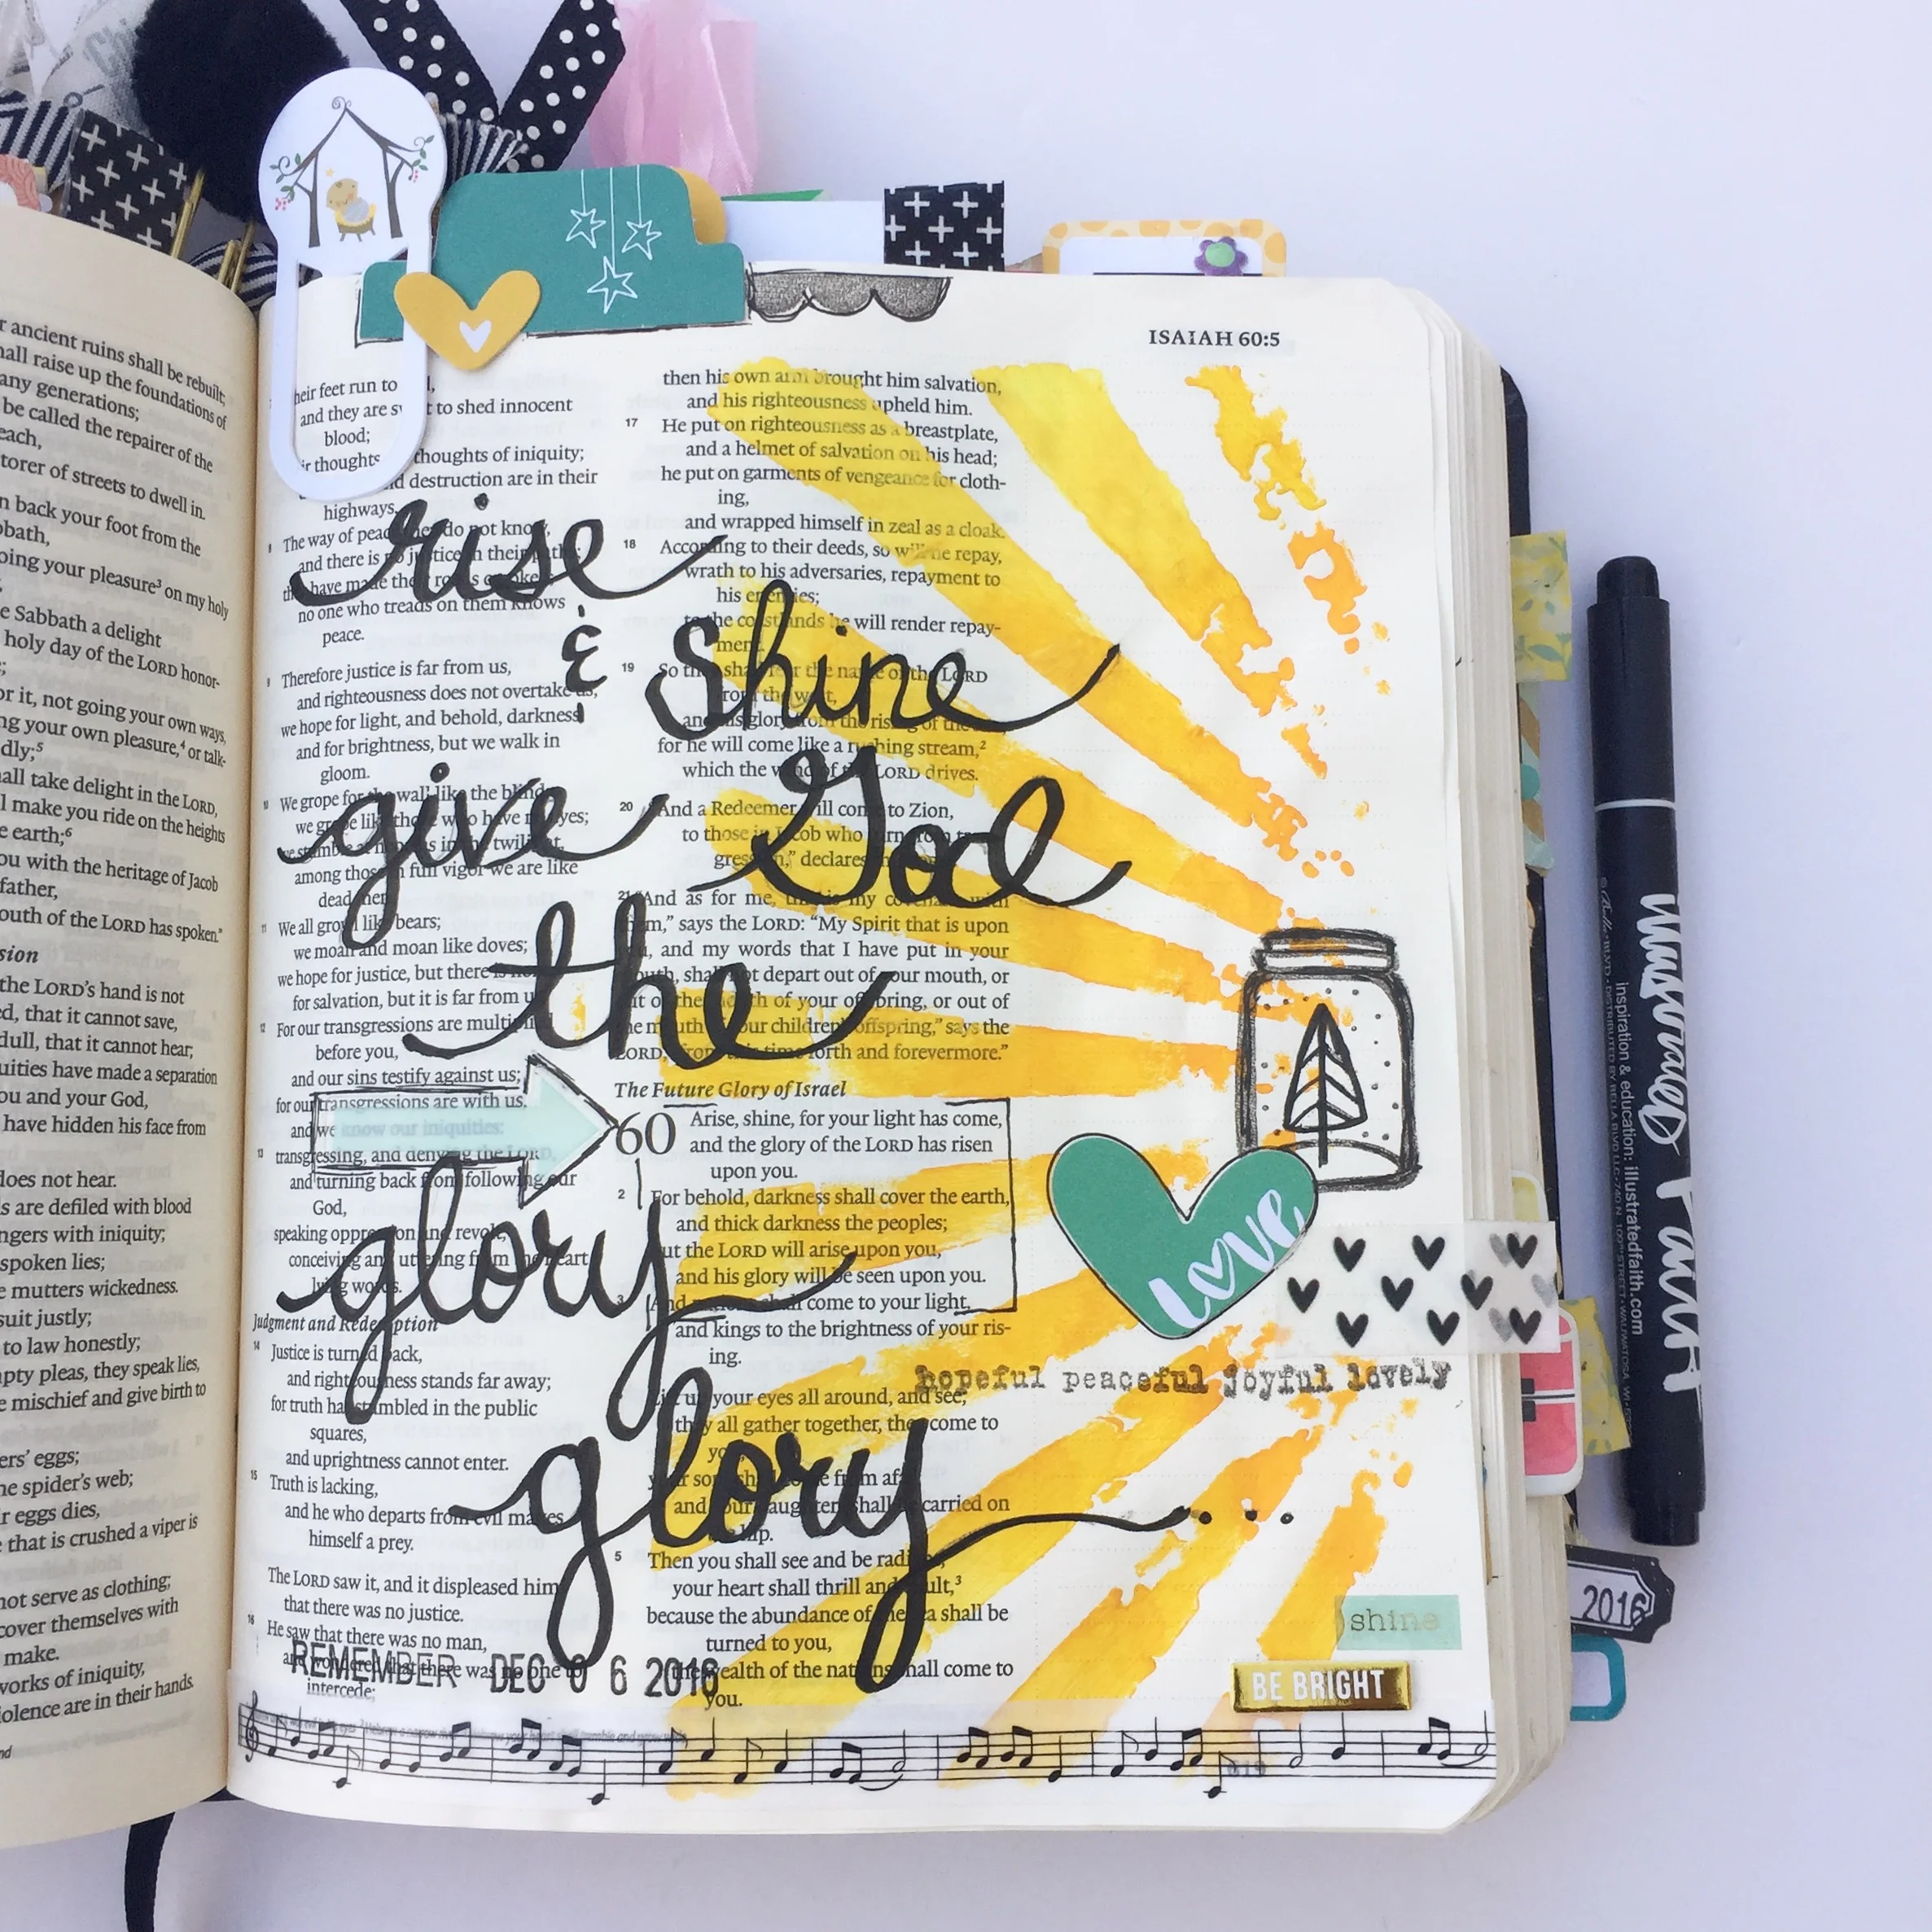 r ancient ruins shall be rebuilt;
hall raise up the foundations of
any generations;
be called the repairer of the
each,
torer of streets to dwell in.
n back your foot from the
bbath,
oing your pleasure³ on my holy
e Sabbath a delight
holy day of the LORD honor-
or it, not going your own ways,
ng your own pleasure,⁴ or talk-
dly;⁵
hall take delight in the LORD,
l make you ride on the heights
e earth;⁶
ou with the heritage of Jacob
father,
outh of the LORD has spoken."
sion
the LORD's hand is not
ed, that it cannot save,
dull, that it cannot hear;
uities have made a separation
ou and your God,
have hidden his face from
does not hear.
s are defiled with blood
ngers with iniquity;
spoken lies;
e mutters wickedness.
suit justly;
to law honestly;
pty pleas, they speak lies,
e mischief and give birth to
ers' eggs;
he spider's web;
r eggs dies,
that is crushed a viper is
not serve as clothing;
cover themselves with
make.
works of iniquity,
iolence are in their hands.
ISAIAH 60:5
heir feet run to
and they are to shed innocent
blood;
thoughts of iniquity;
destruction are in their
highways.
8 The way of peace they do not know,
and there is no justice in their paths;
have made their roads crooked;
no one who treads on them knows
peace.
9 Therefore justice is far from us,
and righteousness does not overtake us;
we hope for light, and behold, darkness,
and for brightness, but we walk in
gloom.
10 We grope for the wall like the blind;
we grope like those who have no eyes;
we stumble at noon as in the twilight,
among those in full vigor we are like
dead men.
11 We all growl like bears;
we moan and moan like doves;
we hope for justice, but there is none;
for salvation, but it is far from us.
12 For our transgressions are multiplied
before you,
and our sins testify against us;
for our transgressions are with us,
and we know our iniquities:
13 transgressing, and denying the LORD,
and turning back from following our
God,
speaking oppression and revolt,
conceiving and uttering from the heart
lying words.
Judgment and Redemption
14 Justice is turned back,
and righteousness stands far away;
for truth has stumbled in the public
squares,
and uprightness cannot enter.
15 Truth is lacking,
and he who departs from evil makes
himself a prey.
The LORD saw it, and it displeased him
that there was no justice.
16 He saw that there was no man,
and wondered that there was no one to
intercede;
then his own arm brought him salvation,
and his righteousness upheld him.
17 He put on righteousness as a breastplate,
and a helmet of salvation on his head;
he put on garments of vengeance for cloth-
ing,
and wrapped himself in zeal as a cloak.
18 According to their deeds, so will he repay,
wrath to his adversaries, repayment to
his enemies;
to the coastlands he will render repay-
ment.
19 So they shall fear the name of the LORD
from the west,
and his glory from the rising of the
for he will come like a rushing stream,²
which the wind of the LORD drives.
20 "And a Redeemer will come to Zion,
to those in Jacob who turn from trans-
gression," declares the
21 "And as for me, this is my covenant with
them," says the LORD: "My Spirit that is upon
you, and my words that I have put in your
mouth, shall not depart out of your mouth, or
out of the mouth of your offspring, or out of
the mouth of your children's offspring," says the
LORD, "from this time forth and forevermore."
The Future Glory of Israel
60 Arise, shine, for your light has come,
and the glory of the LORD has risen
upon you.
2 For behold, darkness shall cover the earth,
and thick darkness the peoples;
but the LORD will arise upon you,
and his glory will be seen upon you.
3 And nations shall come to your light,
and kings to the brightness of your ris-
ing.
Lift up your eyes all around, and see;
they all gather together, they come to
you;
your sons shall come from afar,
and your daughters shall be carried on
the hip.
5 Then you shall see and be radiant;
your heart shall thrill and exult,³
because the abundance of the sea shall be
turned to you,
the wealth of the nations shall come to
you.
rise
& shine
give God
the
glory
glory...
love
hopeful peaceful joyful lovely
shine
BE BRIGHT
REMEMBER DEC 0 6 2016
619
2016
illustrated Faith
inspiration & education: illustratedfaith.com